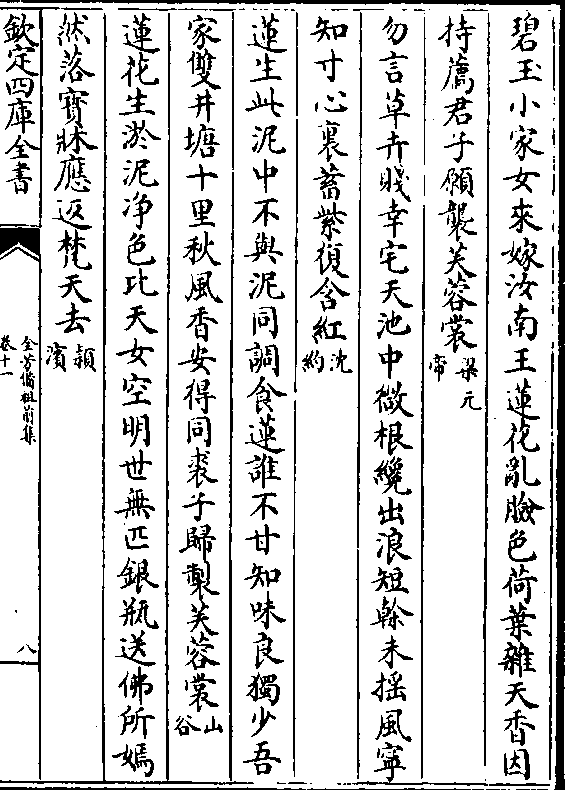 碧玉小家女來嫁汝南王蓮花亂臉色荷葉雜天香因
持薦君子願襲芙蓉裳梁元帝
勿言草卉賤幸宅天池中㣲根纔出浪短榦未摇風寧
知寸心裏蓄紫復含紅沈約
蓮生此泥中不與泥同調食蓮誰不甘知味良獨少吾
家雙井塘十里秋風香安得同裘子歸製芙蓉裳山谷
蓮花生淤泥净色比天女空明世無匹銀瓶送佛所嫣
然落寶牀應返梵天去潁濱
欽定四庫全書
全芳備祖前集
卷十一
八